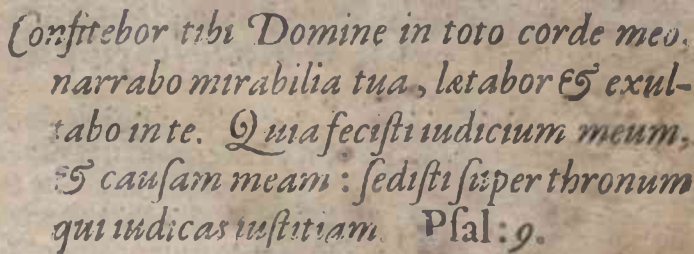 Confitebor tibi Domine in toto corde meo,
narrabo mirabilia tua, lætabor & exul-
tabo in te. Quia fecisti iudicium meum,
& causam meam: sedisti super thronum
qui iudicas iustitiam. Psal:9.